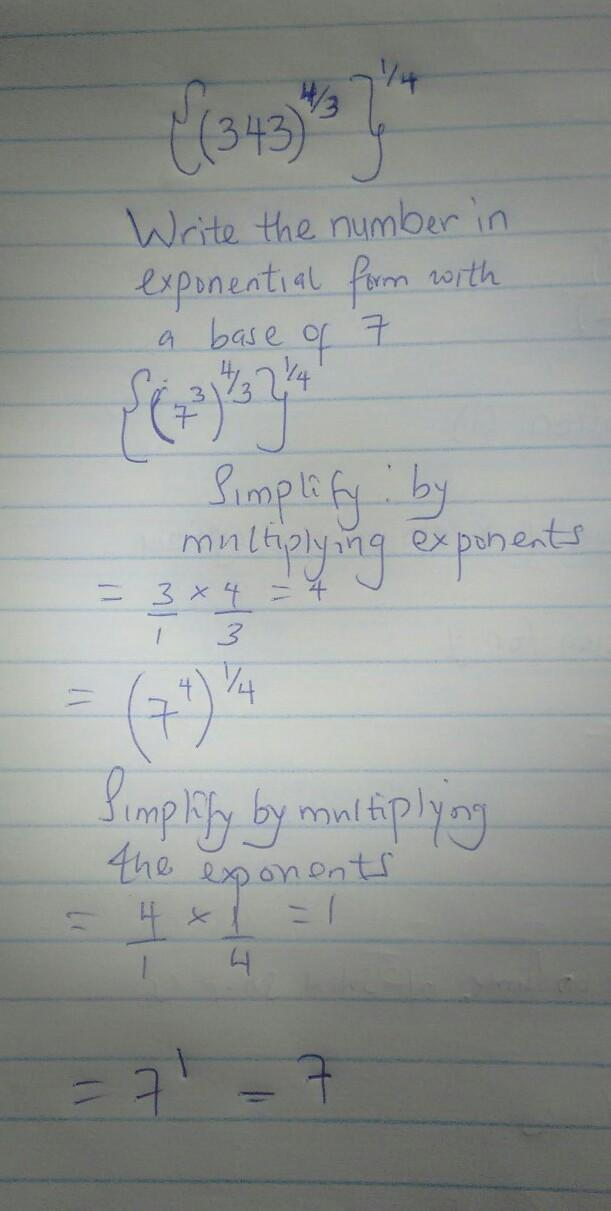 {(343)^4/3}^1/4
Write the number in
exponential form with
a base of 7
{(7^3)^4/3}^1/4
Simplify : by
multiplying exponents
= 3/1 × 4/3 = 4
= (7^4)^1/4
Simplify by multiplying
the exponents
= 4/1 × 1/4 = 1
= 7^1 = 7